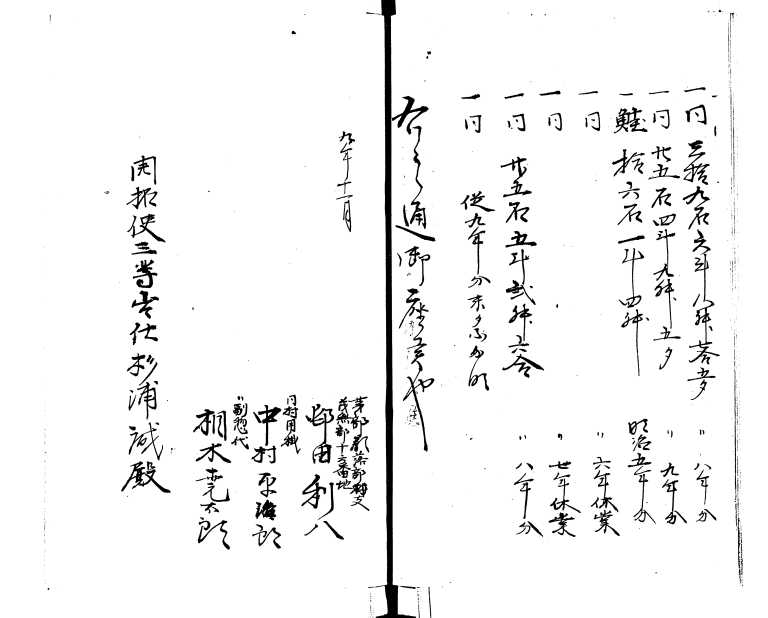 一同 三拾九石六斗八升壱合 〃 八年分
一同 廿五石四斗九升五夕 〃 九年分
一鮭 拾六石一斗四升 明治五年分
一同 〃 六年休業
一同 〃 七年休業
一同 廿五石五斗弐升六合 〃 八年分
一同 従九年分
右之通御座候也
九年十一月
茅部郡落部村支
茂無部十六番地
邨田利八
同村用掛
中村平治郎
〃副惣代
相木喜代太郎
開拓使三等出仕杉浦誠殿